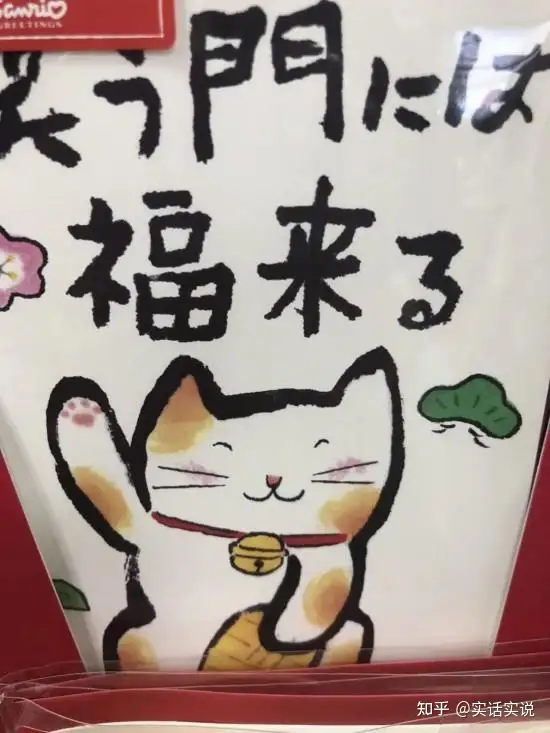 Sanrio
GREETINGS
笑う門には
福来る
知乎 @实话实说